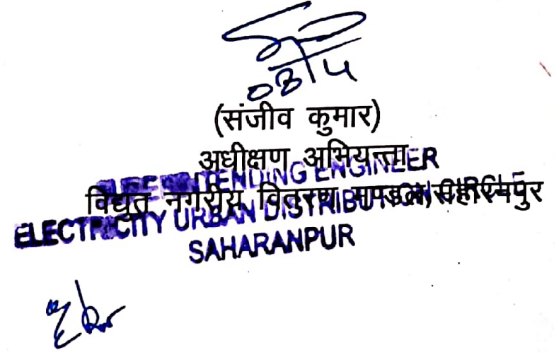 08/4
(संजीव कुमार)
अधीक्षण अभियन्ता
विद्युत नगरीय वितरण मण्डल, सहारनपुर
SUPERINTENDING ENGINEER
ELECTRICITY URBAN DISTRIBUTION CIRCLE
SAHARANPUR